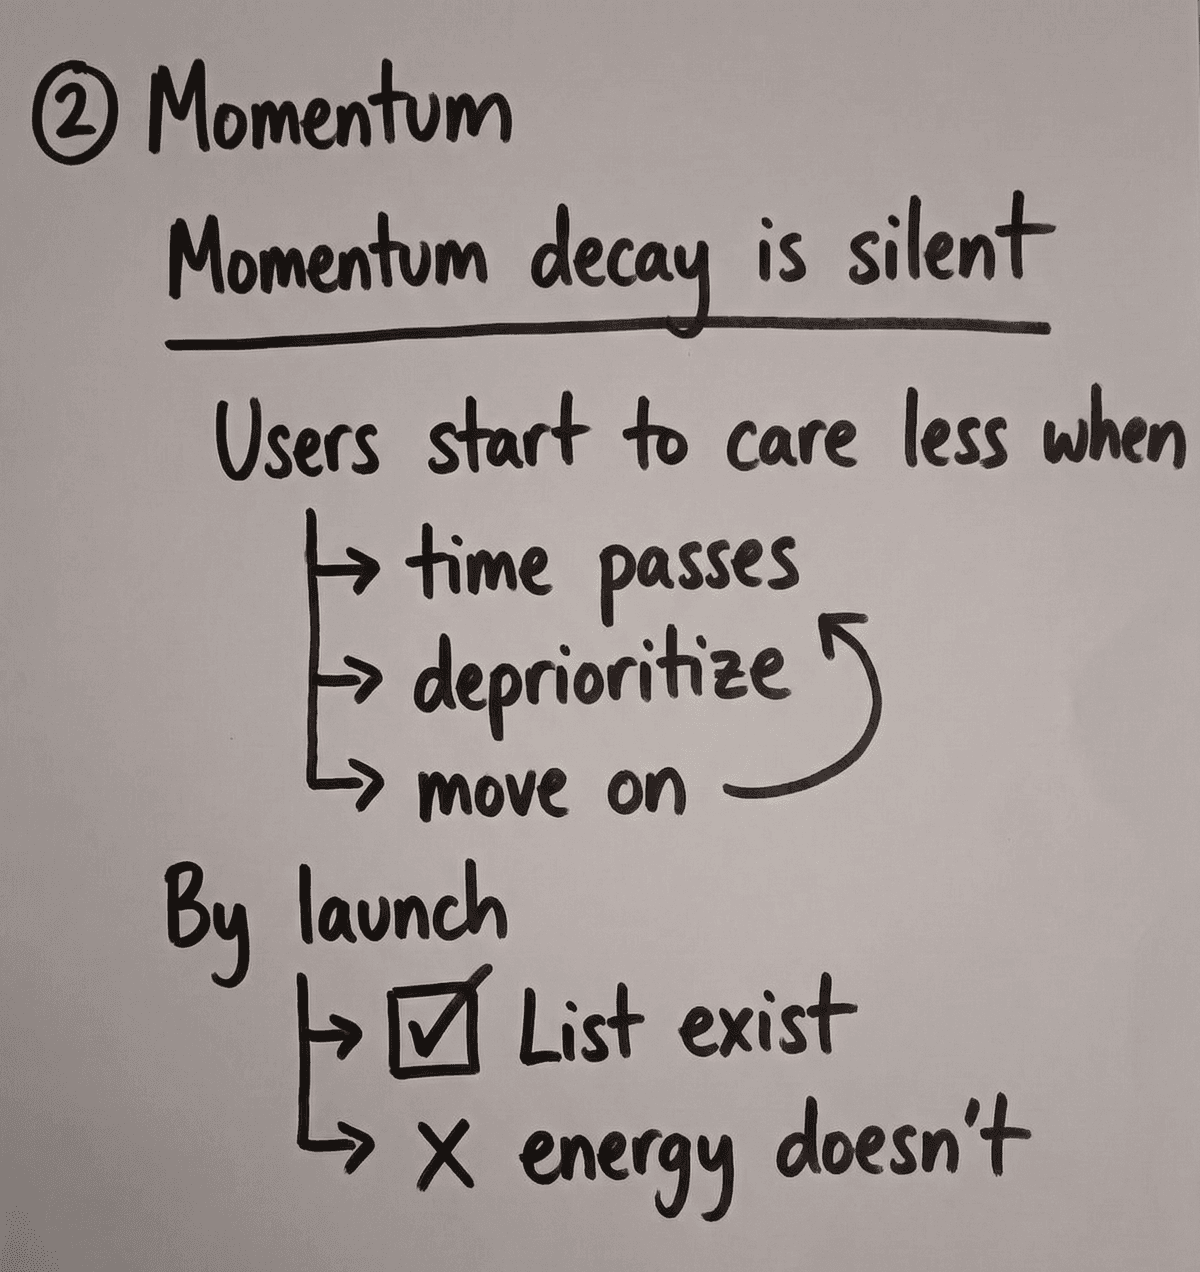 ② Momentum
Momentum decay is silent
Users start to care less when
→ time passes
→ deprioritize
→ move on
By launch
→ ☑ List exist
→ X energy doesn't